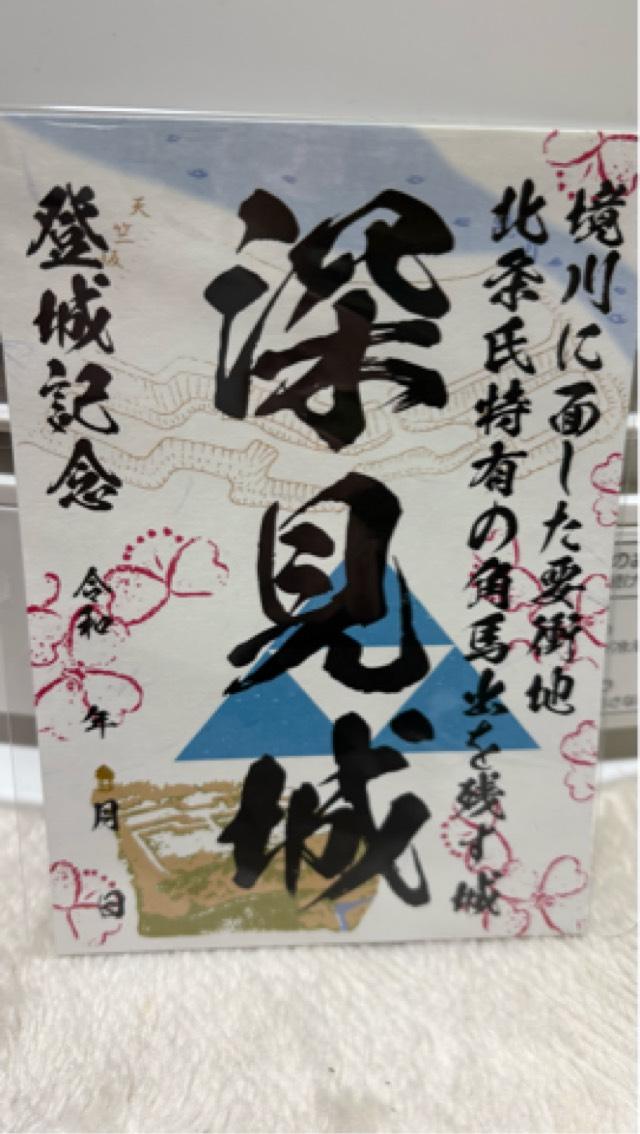 境川に面した要衝地
北条氏特有の角馬出を残す城
深見城
天竺坂
登城記念
令和 年 月 日